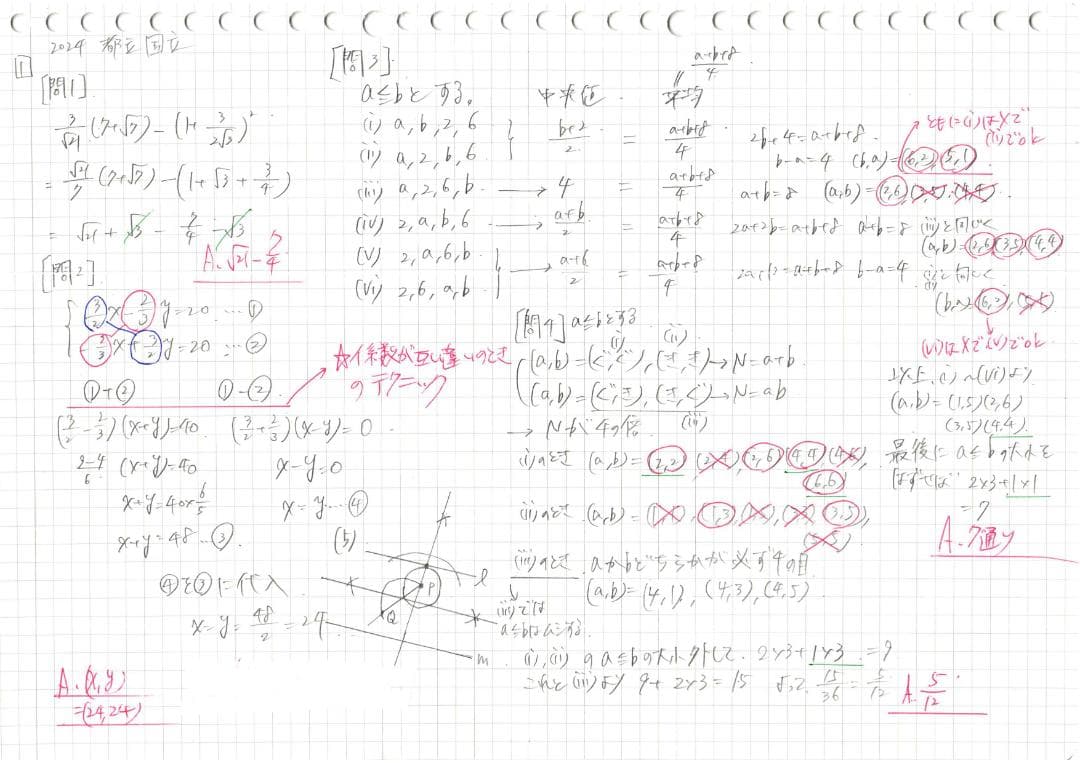 2024 都立国立
1
[問1]
3/√21 (7+√7) - (1 + 3/2√3)²
= √21/7 (7+√7) - (1+√3+3/4)
= √21 + √3 - 7/4 - √3
A. √21 - 7/4
[問2]
3/2 x - 2/3 y = 20 … ①
-2/3 x + 3/2 y = 20 … ②
☆係数が互い違いのとき
のテクニック
①+② ①-②
(3/2 - 2/3)(x+y)=40 (3/2 + 2/3)(x-y)=0
(x+y)=40 x-y=0
x+y=40×6/5 x=y…④
x+y=48…③
④を③に代入
x=y=48/2=24
A. (x,y)
=(24,24)
(5)
A
l
P
Q
m
[問3]
a≦bとする。
中央値 平均
a+b+8/4
(i) a, b, 2, 6
(ii) a, 2, b, 6
b+2/2 = a+b+8/4 2b+4=a+b+8
b-a=4 (b,a)=(6,2),(5,1)
ともに(i)は×で
(ii)でok
(iii) a, 2, 6, b → 4 = a+b+8/4 a+b=8 (a,b)=(2,6),(3,5),(4,4)
(iv) 2, a, b, 6 → a+b/2 = a+b+8/4 2a+2b=a+b+8 a+b=8 (iii)と同じく
(a,b)=(2,6)(3,5)(4,4)
(v) 2, a, 6, b
(vi) 2, 6, a, b
→ a+6/2 = a+b+8/4 2a+12=a+b+8 b-a=4 (i)と同じく
(b,a)=(6,2),(5,1)
(vi)は×で(v)でok
以上(i)~(vi)より
(a,b)=(1,5)(2,6)
(3,5)(4,4)
最後にa≦bの大小を
はずせば 2×3+1×1
=7
A. 7通り
[問4] a≦bとする
(i) (ii)
(a,b)=(ぐ,ぐ),(き,き)→N=a+b
(a,b)=(ぐ,き),(き,ぐ)→N=ab
(iii)
→ Nが4の倍
(i)のとき (a,b)=(2,2)(2,4)(2,6)(4,4)(4,6)
(6,6)
(ii)のとき (a,b)=(1,1)(1,3)(1,5)(3,3)(3,5),
(5,5)
(iii)のとき aかbどちらかが必ず4の目
(a,b)=(4,1),(4,3),(4,5)
(iii)では
a≦bはムシする
(i),(ii)のa≦bの大小外して 2×3+1×3=9
これと(iii)より 9+2×3=15 よって 15/36=5/12
A. 5/12